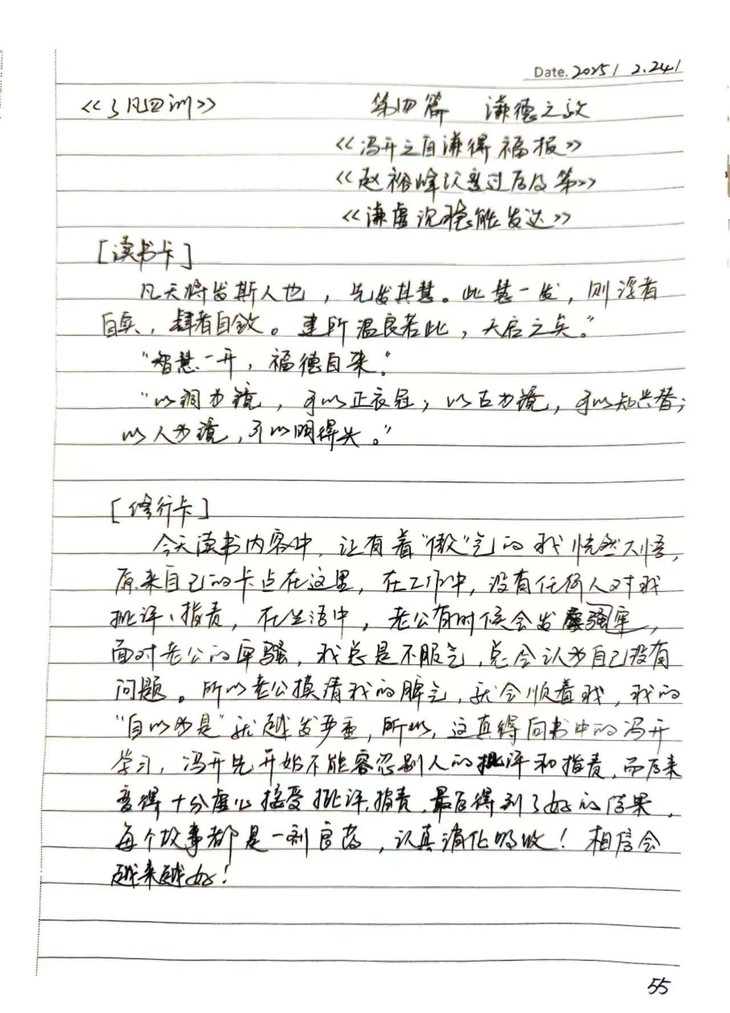 Date. 2025 / 2.24 /
《了凡四训》 第四篇 谦德之效
《冯开之自谦得福报》
《赵裕峰认错过后及第》
《谦虚沉稳能发达》
[读书卡]
凡天将发斯人也，先发其慧。此慧一发，则浮者
自实，肆者自敛。建所温良若此，天启之矣。”
“智慧一开，福德自来。”
“以铜为镜，可以正衣冠；以古为镜，可以知兴替；
以人为镜，可以明得失。”
[修行卡]
今天读书内容中，让有着“傲”气的我恍然大悟，
原来自己的卡点在这里，在工作中，没有任何人对我
批评、指责，在生活中，老公有时候会发牢骚，
面对老公的牢骚，我总是不服气，总会认为自己没有
问题。所以老公摸清我的脾气，就会顺着我，我的
“自以为是”就越发严重，所以，这真得向书中的冯开
学习，冯开先开始不能容忍别人的批评和指责，而后来
变得十分虚心接受批评、指责，最后得到了好的结果。
每个故事都是一剂良药，认真消化吸收！相信会
越来越好！
55